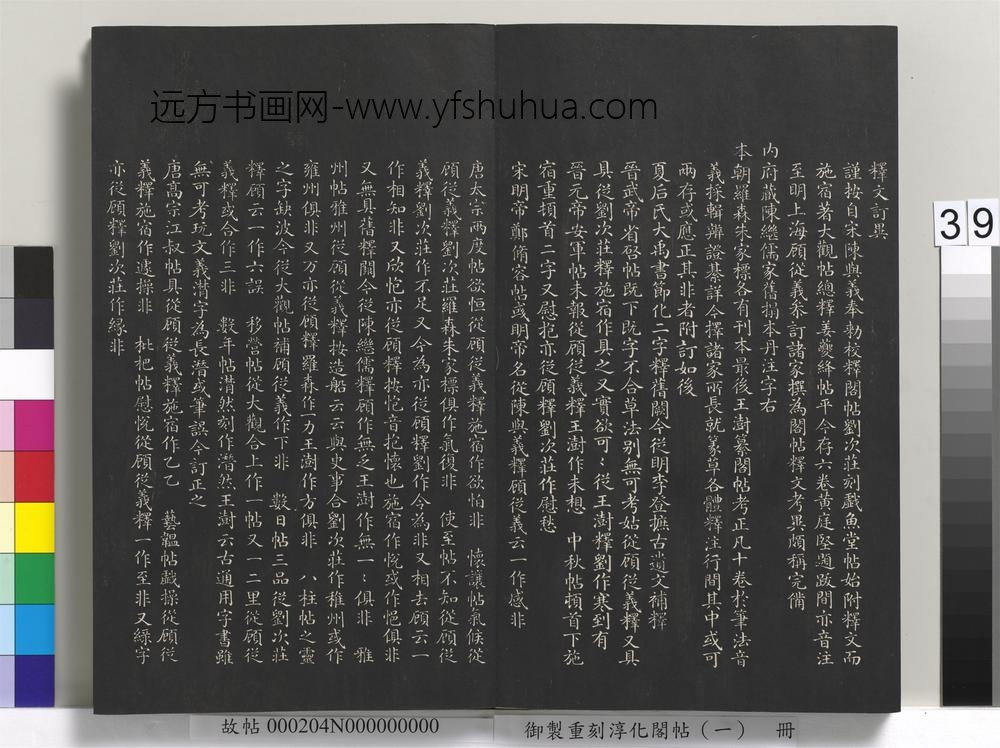 远方书画网-www.yfshuhua.com
釋文訂異
謹按自宋陳與義奉勅校釋閣帖劉次莊刻戲魚堂帖始附釋文而
施宿著大觀帖總釋姜夔絳帖平今存六卷黄庭堅題跋間亦音注
至明上海顧從義叅訂諸家撰為閣帖釋文考異頗稱完備
内府藏陳繼儒家舊搨本丹注字右
本朝羅森朱家標各有刊本最後王澍纂閣帖考正凡十卷於筆法音
義採輯辯證綦詳今擇諸家所長就篆草各體釋注行間其中或可
兩存或應正其非者附訂如後
夏后氏大禹書節化二字釋舊闕今從明李登摭古遺文補釋
晉武帝省啓帖既下既字不合草法别無可考姑從顧從義釋又具
具從劉次莊釋施宿作具之又實欲可〻從王澍釋劉作寒到有
晉元帝安軍帖未報從顧從義釋王澍作未想 中秋帖頓首下施
宿重頓首二字又慰抱亦從顧釋劉次莊作慰愁
宋明帝鄭脩容帖或明帝名從陳與義釋顧從義云一作感非
唐太宗兩度帖欲恒從顧從義釋施宿作欲怕非 懷讓帖氣候從
顧從義釋劉次莊羅森朱家標俱作氣復非 使至帖不知從顧從
義釋劉次莊作不足又今為亦從顧釋劉作令為非又相去顧云一
作相知非又欣恺亦從顧釋按恺音抱懷也施宿作怳或作悒俱非
又無具舊釋闕今從陳繼儒釋顧作無之王澍作無一〻俱非 雅
州帖雅州從顧從義釋按造船云云與史事合劉次莊作稚州或作
雍州俱非又万亦從顧釋羅森作力王澍作方俱非 八柱帖之靈
之字缺波今從大觀帖補顧從義作下非 數日帖三品從劉次莊
釋顧云一作六誤 移營帖從大觀合上作一帖又一二里從顧從
義釋或合作三非 數年帖潸然刻作潜然王澍云古通用字書雖
無可考玩文義潸字為長潜或筆誤今訂正之
唐高宗江叔帖具從顧從義釋施宿作乙乙 藝韞帖戢操從顧從
義釋施宿作遽操非 枇杷帖慰怳從顧從義釋一作至非又緑字
亦從顧釋劉次莊作緣非
39
故帖 000204N000000000
御製重刻淳化閣帖（一） 冊